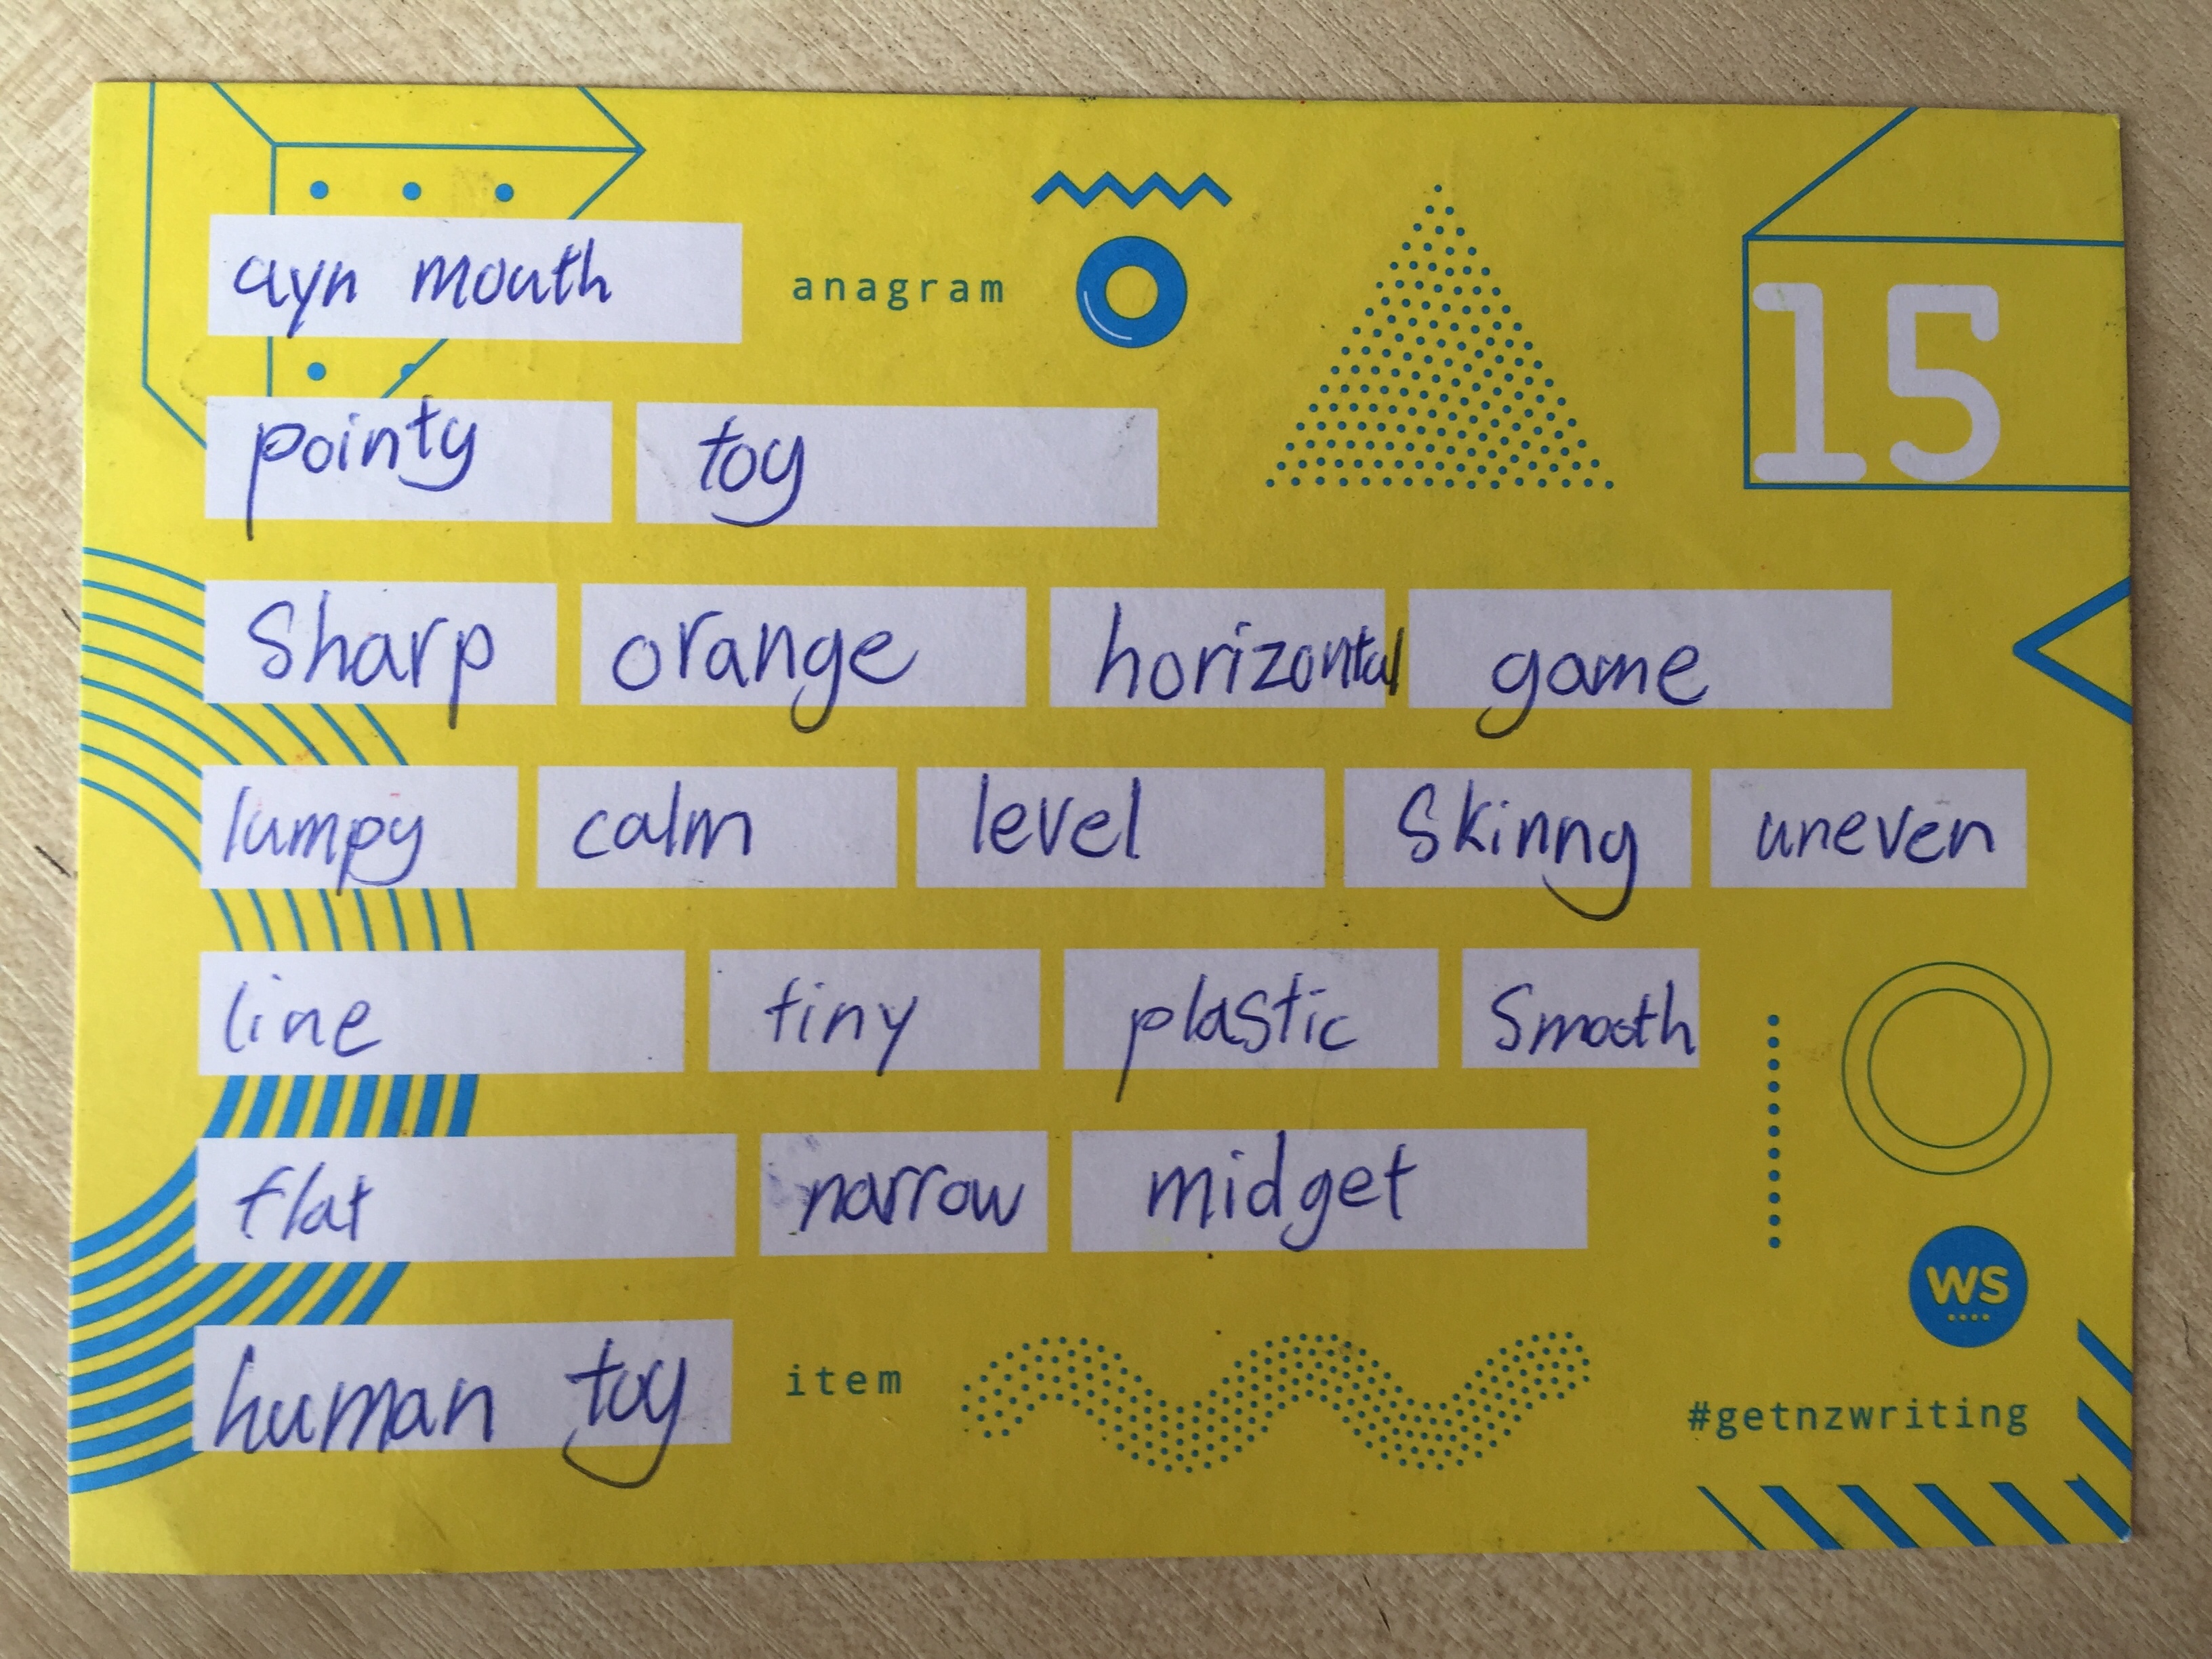 ayn mouth anagram 15
pointy toy
Sharp orange horizontal game
lumpy calm level Skinny uneven
line tiny plastic Smooth
flat narrow midget
WS
human toy item
#getnzwriting